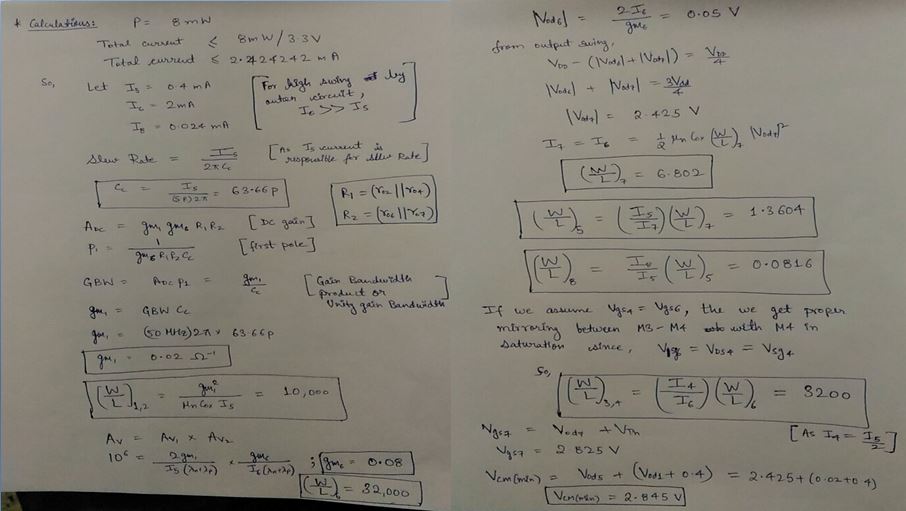 * Calculations: P = 8 mW
Total current ≤ 8mW/3.3V
Total current ≤ 2.424242 mA
So, Let I5 = 0.4 mA
I6 = 2mA
I8 = 0.024 mA
[For high swing by outer circuit, I6 >> I5]
Slew Rate = I5 / 2πCc [As I5 current is responsible for Slew Rate]
Cc = I5 / (SR)2π = 63.66p
R1 = (r02 || r04)
R2 = (r06 || r07)
ADC = gm1 gm6 R1 R2 [DC gain]
P1 = 1 / gm6 R1 R2 Cc [first pole]
GBW = ADC P1 = gm1 / Cc [Gain Bandwidth product or Unity gain Bandwidth]
gm1 = GBW Cc
gm1 = (50 MHz)2π × 63.66p
gm1 = 0.02 Ω⁻¹
[W/L]1,2 = gm1² / μn Cox I5 = 10,000
AV = AV1 × AV2
10⁶ = 2gm1 / I5(λn+λp) × gm6 / I6(λn+λp) ; gm6 = 0.08
(W/L)6 = 32,000
|Vod6| = 2I6 / gm6 = 0.05 V
from output swing,
VDD - (|Vod6| + |Vod7|) = VDD/4
|Vod6| + |Vod7| = 3Vdd/4
|Vod7| = 2.425 V
I7 = I6 = 1/2 μn Cox (W/L)7 |Vod7|²
(W/L)7 = 6.802
(W/L)5 = (I5/I7)(W/L)7 = 1.3604
(W/L)8 = I8/I5 (W/L)5 = 0.0816
If we assume Vgs4 = Vgs6, the we get proper
mirroring between M3-M4 with M4 in
saturation since, Vsg6 = VDS4 = Vsg4
So,
(W/L)3,4 = (I4/I6)(W/L)6 = 3200
[As I4 = I5/2]
Vgs7 = Vod7 + VTn
Vgs7 = 2.825 V
Vcm(min) = Vod5 + (Vod1 + 0.4) = 2.425+(0.02+0.4)
Vcm(min) = 2.845 V